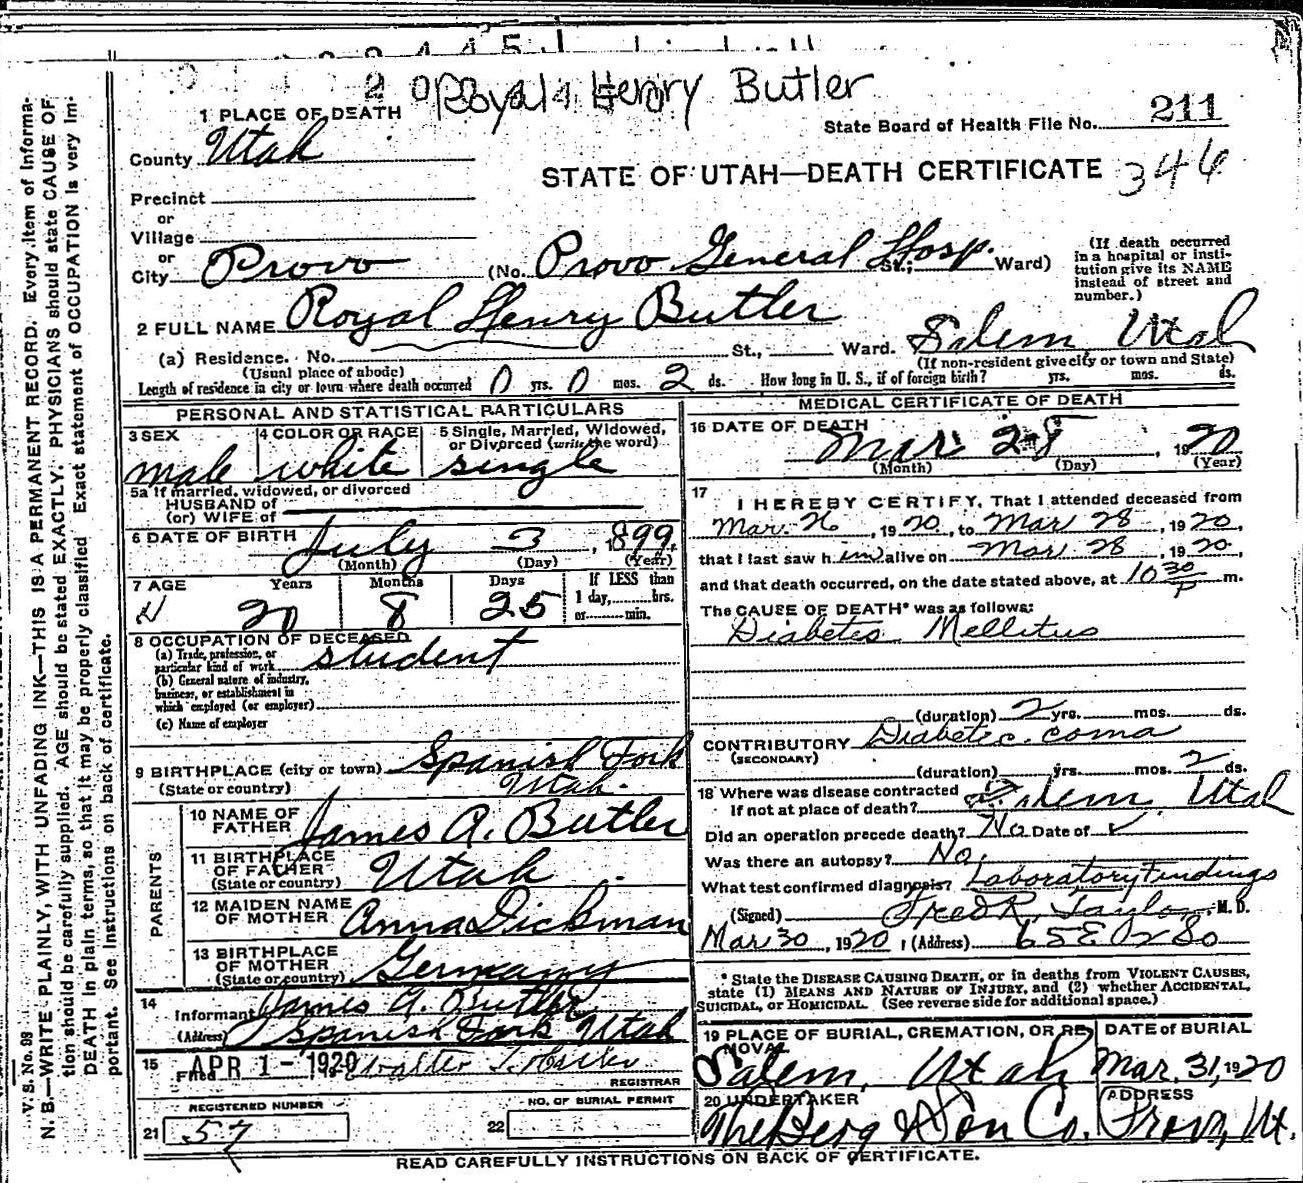 Royal Henry Butler
1 PLACE OF DEATH
State Board of Health File No. 211
County Utah
STATE OF UTAH—DEATH CERTIFICATE 346
Precinct
or
Village
or
City Provo (No. Provo General Hosp. St.; Ward)
(If death occurred in a hospital or institution give its NAME instead of street and number.)
2 FULL NAME Royal Henry Butler
(a) Residence. No. St., Ward. Salem Utah
(Usual place of abode) (If non-resident give city or town and State)
Length of residence in city or town where death occurred 0 yrs. 0 mos. 2 ds. How long in U. S., if of foreign birth? yrs. mos. ds.
PERSONAL AND STATISTICAL PARTICULARS
3 SEX male
4 COLOR OR RACE white
5 Single, Married, Widowed, or Divorced (write the word) single
5a If married, widowed, or divorced
HUSBAND of
(or) WIFE of
6 DATE OF BIRTH July 3, 1899
(Month) (Day) (Year)
7 AGE Years Months Days If LESS than
20 8 25 1 day, hrs.
or min.
8 OCCUPATION OF DECEASED
(a) Trade, profession, or particular kind of work student
(b) General nature of industry, business, or establishment in which employed (or employer)
(c) Name of employer
9 BIRTHPLACE (city or town) Spanish Fork
(State or country) Utah.
PARENTS
10 NAME OF FATHER James A. Butler
11 BIRTHPLACE OF FATHER (State or country) Utah
12 MAIDEN NAME OF MOTHER Anna Dickman
13 BIRTHPLACE OF MOTHER (State or country) Germany
14 Informant James A. Butler
(Address) Spanish Fork Utah
15 Filed APR 1 - 1920 Walter T.
REGISTRAR
REGISTERED NUMBER
21 57
NO. OF BURIAL PERMIT
22
MEDICAL CERTIFICATE OF DEATH
16 DATE OF DEATH Mar. 28, 1920
(Month) (Day) (Year)
17 I HEREBY CERTIFY, That I attended deceased from
Mar. 26, 1920, to Mar 28, 1920,
that I last saw him alive on Mar. 28, 1920,
and that death occurred, on the date stated above, at 10 30 P m.
The CAUSE OF DEATH* was as follows:
Diabetes Mellitus
(duration) 2 yrs. mos. ds.
CONTRIBUTORY Diabetic coma
(SECONDARY)
(duration) yrs. mos. 2 ds.
18 Where was disease contracted
If not at place of death? Salem, Utah
Did an operation precede death? No Date of
Was there an autopsy? No
What test confirmed diagnosis? Laboratory Findings
(Signed) Fred R. Taylor, M. D.
Mar 30, 1920 (Address)
* State the DISEASE CAUSING DEATH, or in deaths from VIOLENT CAUSES,
state (1) MEANS AND NATURE OF INJURY, and (2) whether ACCIDENTAL,
SUICIDAL, or HOMICIDAL. (See reverse side for additional space.)
19 PLACE OF BURIAL, CREMATION, OR REMOVAL Salem, Utah
DATE of BURIAL Mar. 31, 1920
20 UNDERTAKER The Berg & Son Co.
ADDRESS Provo, Ut.
READ CAREFULLY INSTRUCTIONS ON BACK OF CERTIFICATE.
V. S. No. 99
N. B.—WRITE PLAINLY, WITH UNFADING INK—THIS IS A PERMANENT RECORD. Every item of informa-
tion should be carefully supplied. AGE should be stated EXACTLY. PHYSICIANS should state CAUSE OF
DEATH in plain terms, so that it may be properly classified. Exact statement of OCCUPATION is very im-
portant. See instructions on back of certificate.